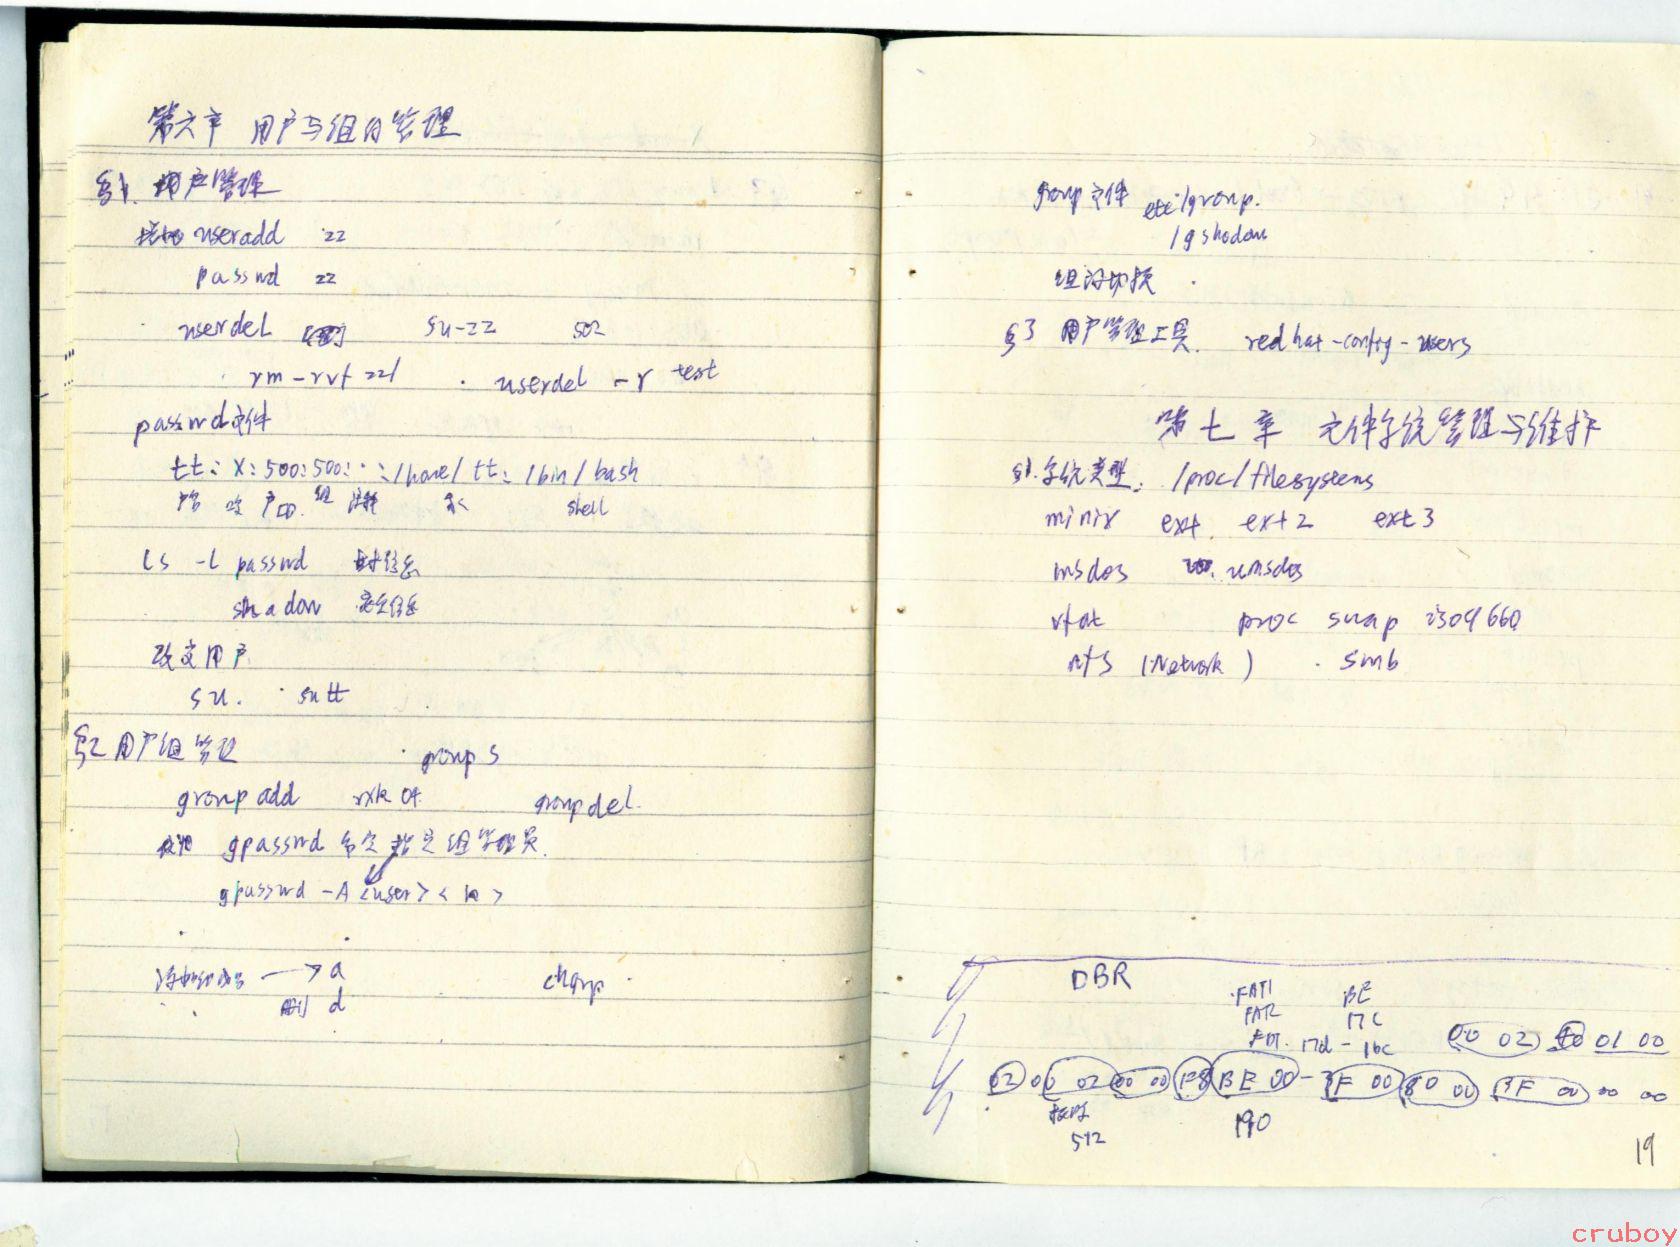 第六章 用户与组的管理
§1. 用户管理
增加 useradd zz
passwd zz
userdel su-zz 502
rm -rvf zz/ userdel -r test
passwd文件
tt: x: 500:500: :/home/ tt: /bin/bash
户名 户ID. 组 注释 shell
ls -l passwd
shadow 安全信息
改变用户
su. su tt
§2 用户组管理 groups
groupadd rxk04. groupdel.
gpasswd 命令 指定组管理员.
gpasswd -A <user> < >
→ a chgrp
删 d
group文件 etc/group.
/gshadow
组的切换
§3 用户管理工具. redhat-config-users
第七章 文件系统管理与维护
§1. 系统类型: /proc/filesystems
minix ext. ext2 ext3
msdos umsdos
vfat proc swap iso9660
nfs (Network) smb
DBR
FAT1 BE
FAT2 17C
FDT. 17d - 1bc 00 02 01 00
02 00 02 00 00 F8 BE 00 - 3F 00 80 00 3F 00 00 00
512 190
19
cruboy